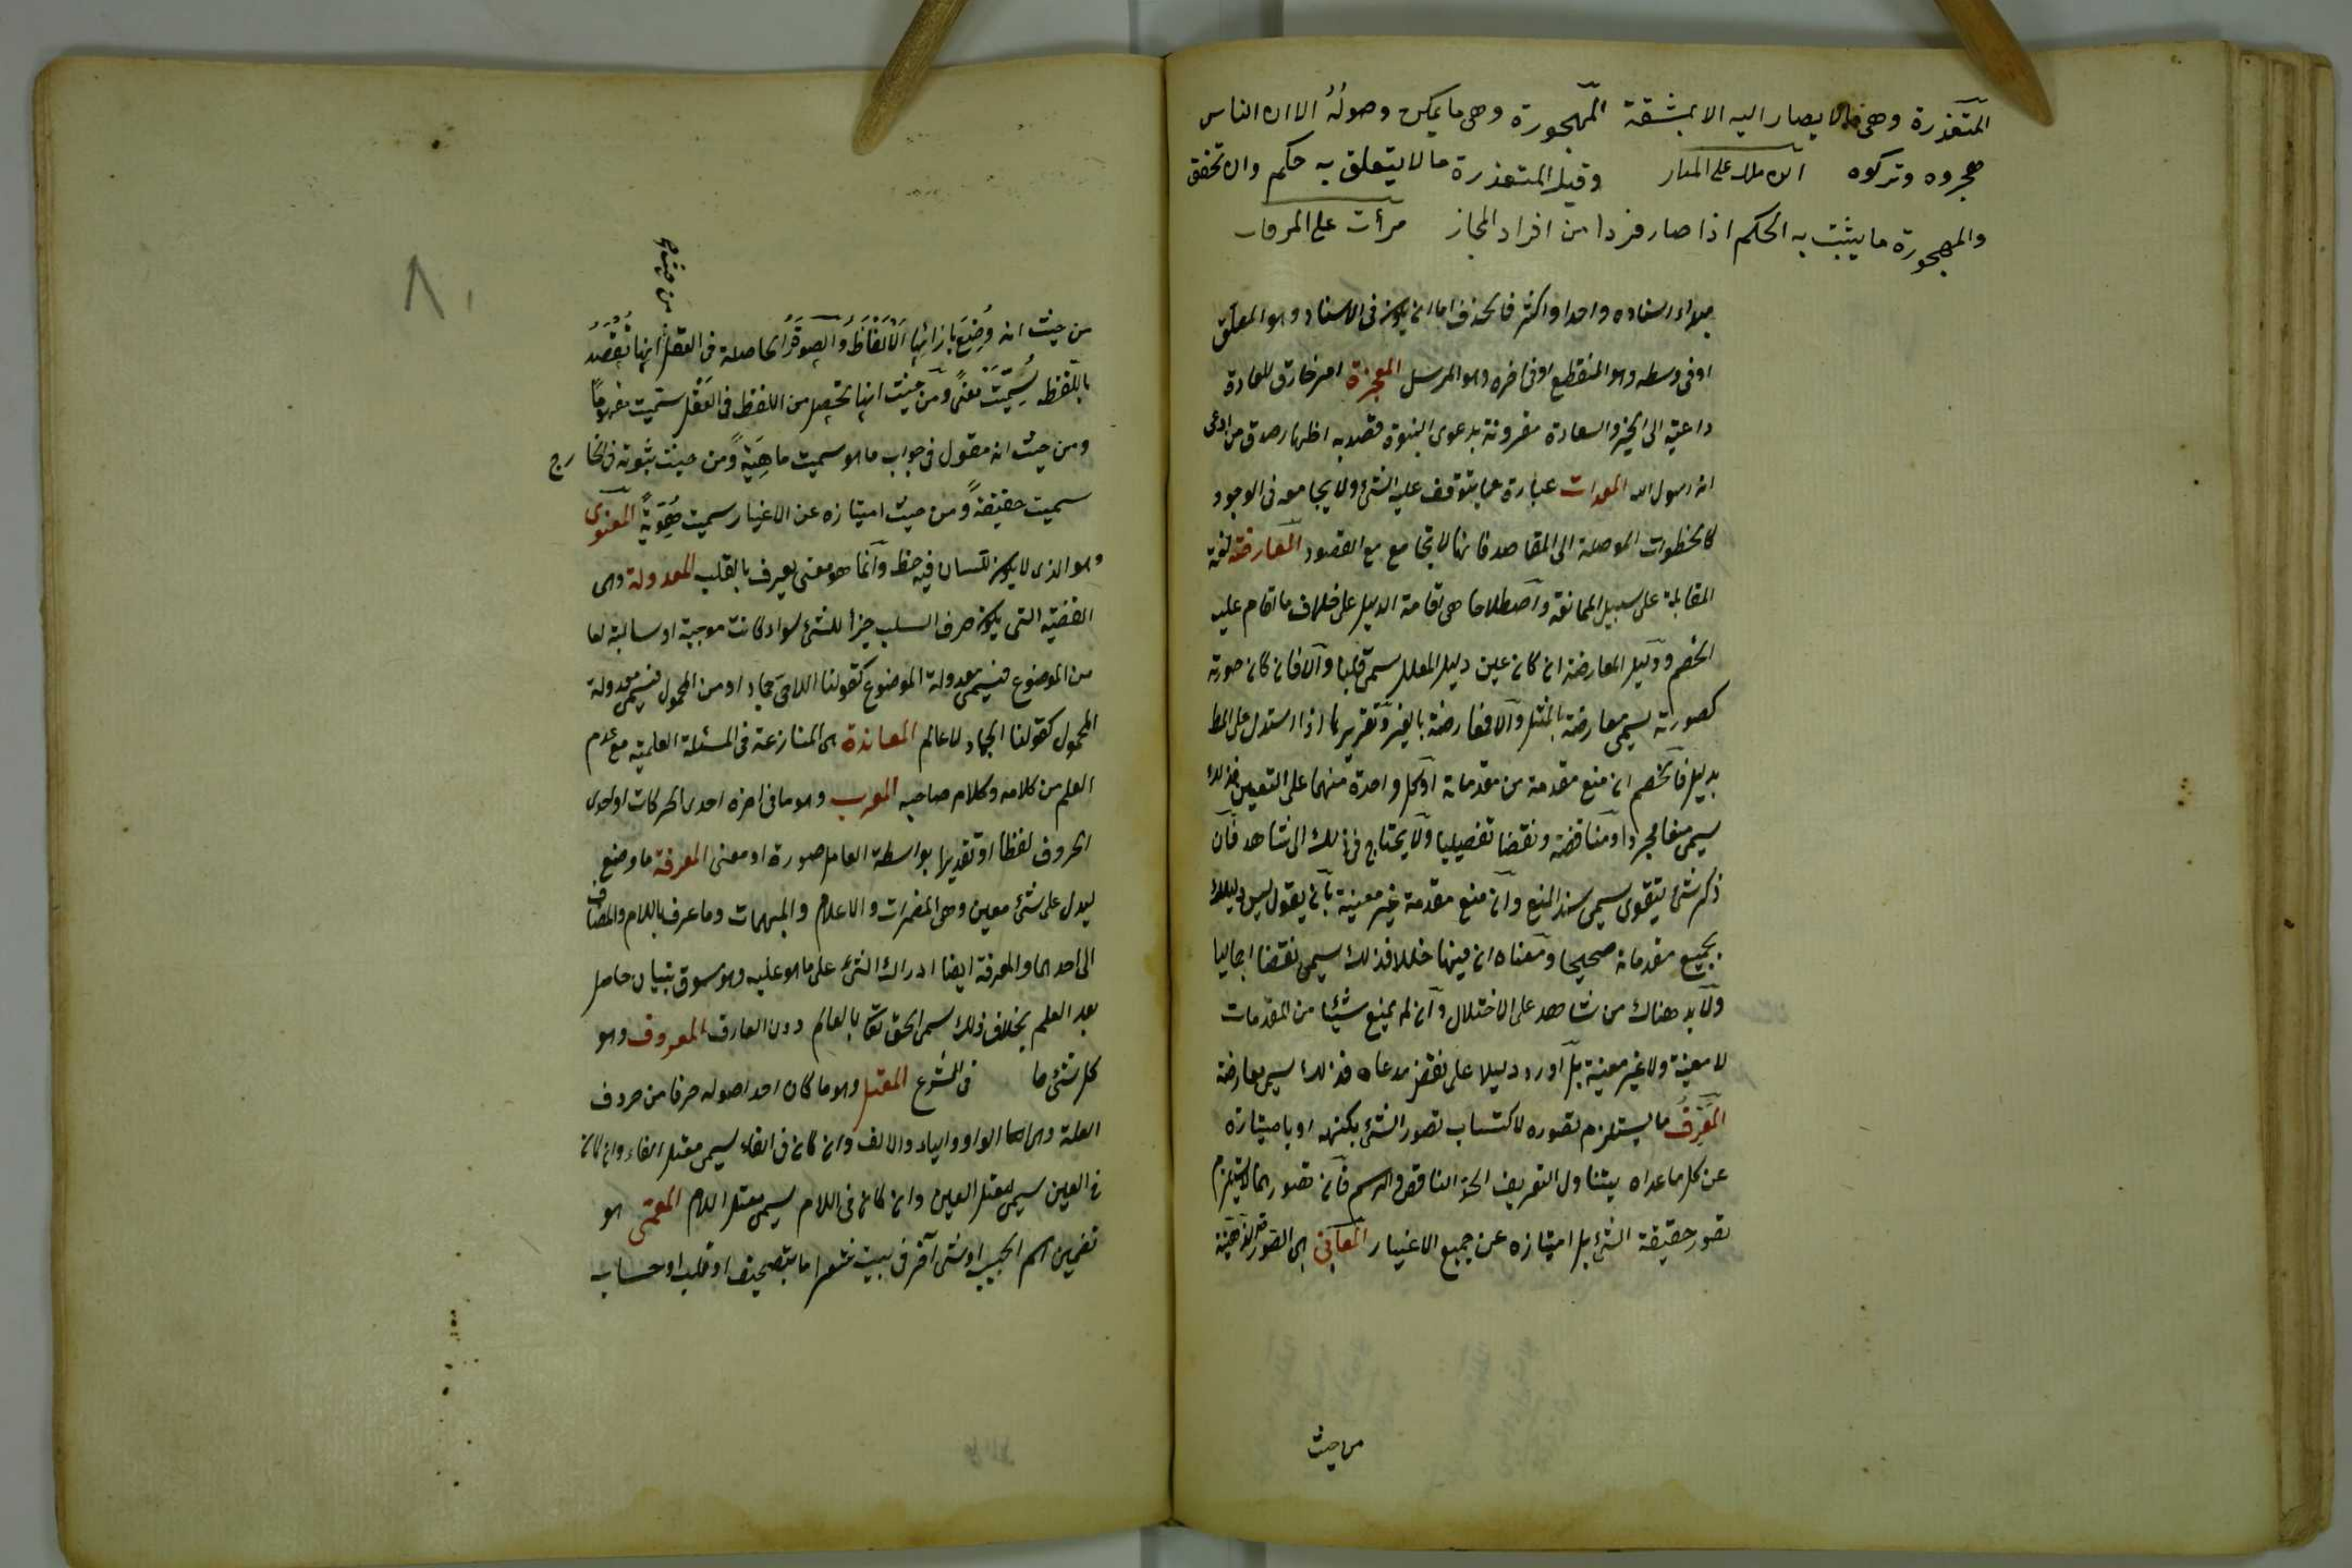 المتعذرة وهى مالا يصار اليه الا بمشقة المهجورة وهى ما يمكن وصوله الا ان الناس
هجروه وتركوه ابن ملك على المنار وقيل المتعذرة مالا يتعلق به حكم وان تحقق
والمهجورة ما يثبت به الحكم اذا صار فردا من افراد المجاز مرآت على المرقات
اسناده واحدا واكثر فالحذف اما ان يكون فى الاسناد وهو المعلق
او فى وسطه وهو المنقطع او فى اخره وهو المرسل المعجزة امر خارق للعادة
داعية الى الخير والسعادة مقرونة بدعوى النبوة قصد به اظهار صدق من ادعى
انه رسول الله المعدات عبارة عما يتوقف عليه الشئ ولا يجامعه فى الوجود
كالخطوات الموصلة الى المقاصد فانها لا تجامع مع المقصود المعارضة لغة
المقابلة على سبيل الممانعة واصطلاحا هى اقامة الدليل على خلاف ما اقام عليه
الخصم ودليل المعارضة ان كان عين دليل المعلل سمى قلبا والا فان كان صورته
كصورته يسمى معارضة بالمثل والا فمعارضة بالغير وتقريرها اذا استدل على المط
بدليل فالخصم ان منع مقدمة من مقدماته او كل واحدة منهما على التعيين فذلك
يسمى منعا مجردا او مناقضة ونقضا تفصيليا ولا يحتاج فى ذلك الى شاهد فان
ذكر شئ يتقوى يسمى سند المنع وان منع مقدمة غير معينة بان يقول ليس دليلك
بجميع مقدماته صحيحا ومعناه ان فيها خللا فذلك يسمى نقضا اجماليا
ولا بد هناك من شاهد على الاختلال وان لم يمنع شيئا من المقدمات
لا معينة ولا غير معينة بل اورد دليلا على نقض مدعاه فذلك يسمى معارضة
المعرف ما يستلزم تصوره لاكتساب تصور الشئ بكنهه او بامتيازه
عن كل ما عداه يتناول التعريف الحد الناقص والرسم فان تصورهما لا يستلزم
تصور حقيقة الشئ بل امتيازه عن جميع الاغيار المعانى هى الصور الذهنية
من حيث
من حيث انه وضع بازائها الالفاظ والصورة الحاصلة فى العقل انها تقصد
باللفظ سميت معنى ومن حيث انها تحصل من اللفظ فى العقل سميت مفهوما
ومن حيث انه مقول فى جواب ما هو سميت ماهية ومن حيث ثبوته فى الخارج
سميت حقيقة ومن حيث امتيازه عن الاغيار سميت هوية المعنوى
وهو الذى لا يكون للسان فيه حظ وانما هو معنى يعرف بالقلب المعدولة وهى
القضية التى يكون حرف السلب جزأ للشئ سواء كانت موجبة او سالبة اما
من الموضوع فيسمى معدولة الموضوع كقولنا اللاحى جماد او من المحمول فيسمى معدولة
المحمول كقولنا الجماد لا عالم المعاندة هى المنازعة فى المسئلة العلمية مع عدم
العلم من كلامه وكلام صاحبه المعرب وهو ما فى اخره احدى الحركات او احدى
الحروف لفظا او تقديرا بواسطة العامل صورة او معنى المعرفة ما وضع
ليدل على شئ معين وهى المضمرات والاعلام والمبهمات وما عرف باللام والمضاف
الى احدهما والمعرفة ايضا ادراك الشئ على ما هو عليه وهو مسبوق بنسيان حاصل
بعد العلم بخلاف ذلك سمى الحق تعا بالعالم دون العارف المعروف وهو
كل شئ ما فى الشرع المعتل وهو ما كان احد اصوله حرفا من حروف
العلة وهى الواو والياء والالف وان كان فى الفاء يسمى معتل الفاء وان كان
فى العين يسمى معتل العين وان كان فى اللام يسمى معتل اللام المعمى هو
تضمين اسم الحبيب او شئ آخر فى بيت شعر اما بتصحيف او قلب او حساب